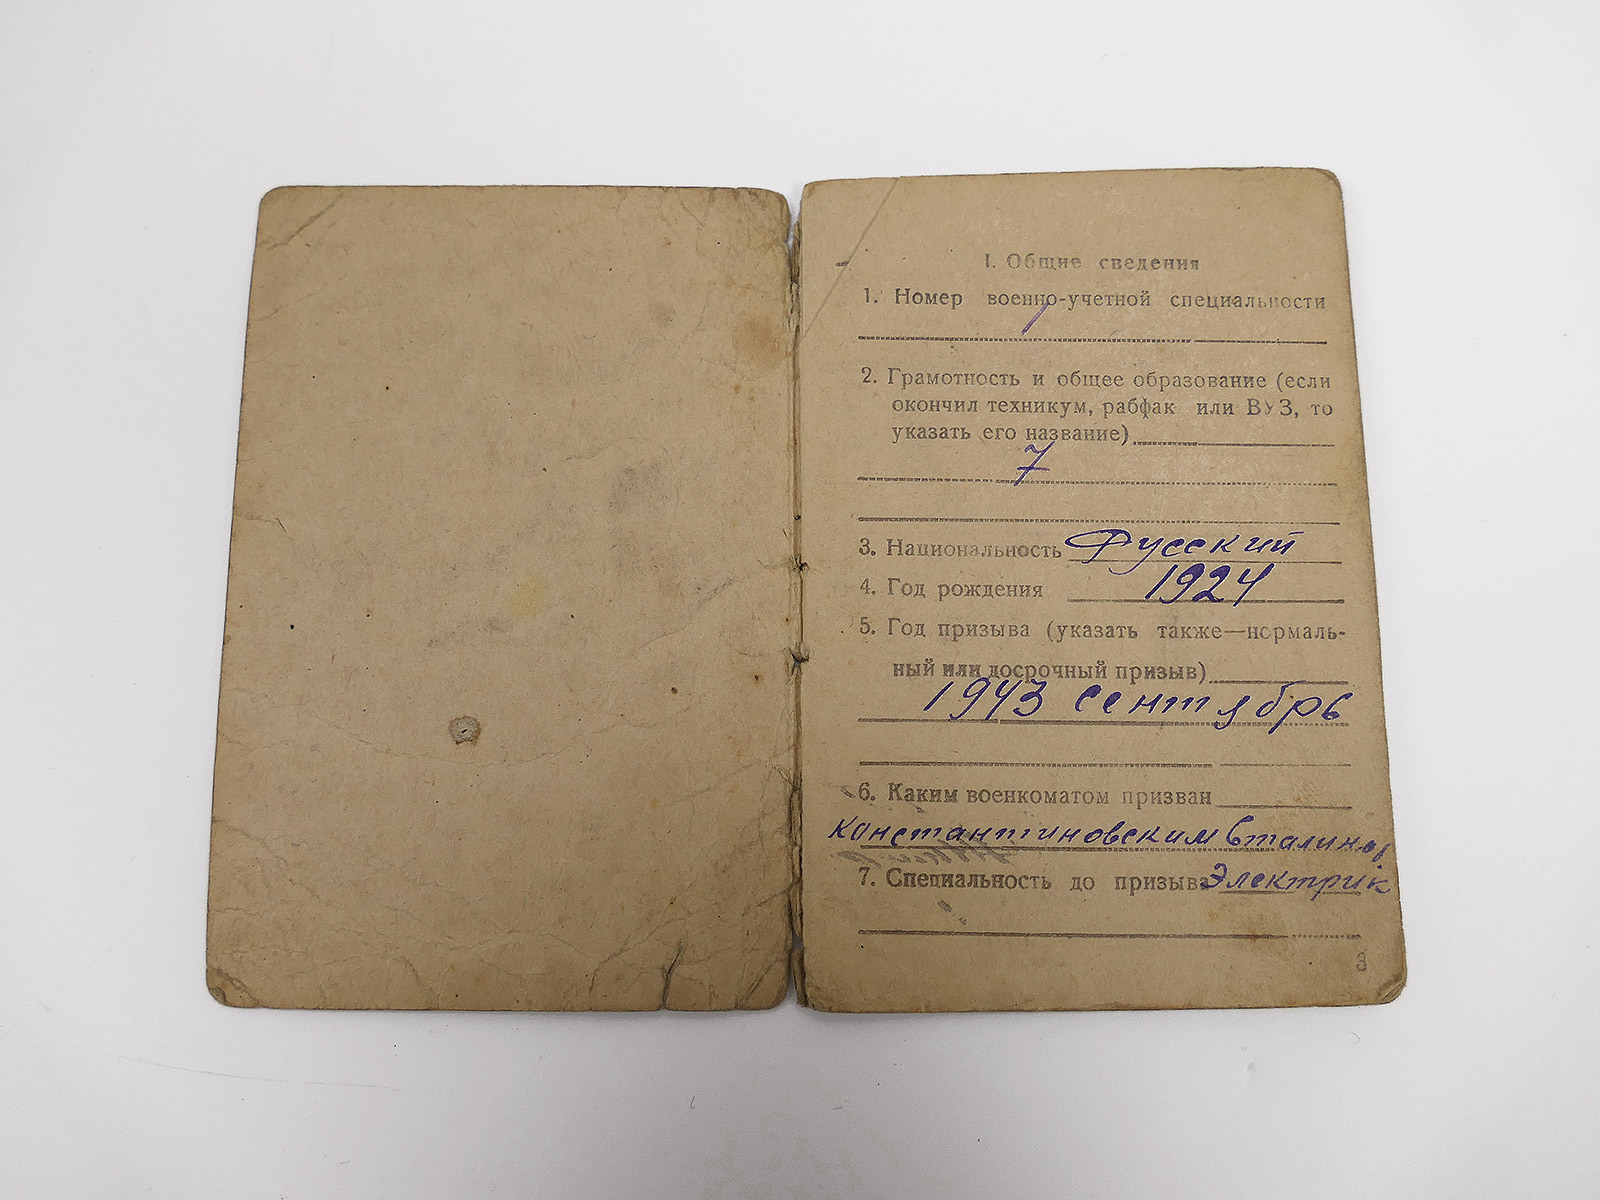 I. Общие сведения
1. Номер военно-учетной специальности
1
2. Грамотность и общее образование (если
окончил техникум, рабфак или ВУЗ, то
указать его название)
7
3. Национальность Русский
4. Год рождения 1924
5. Год призыва (указать также—нормаль-
ный или досрочный призыв)
1943 сентябрь
6. Каким военкоматом призван
Константиновским Сталинов.
7. Специальность до призыва Электрик
3